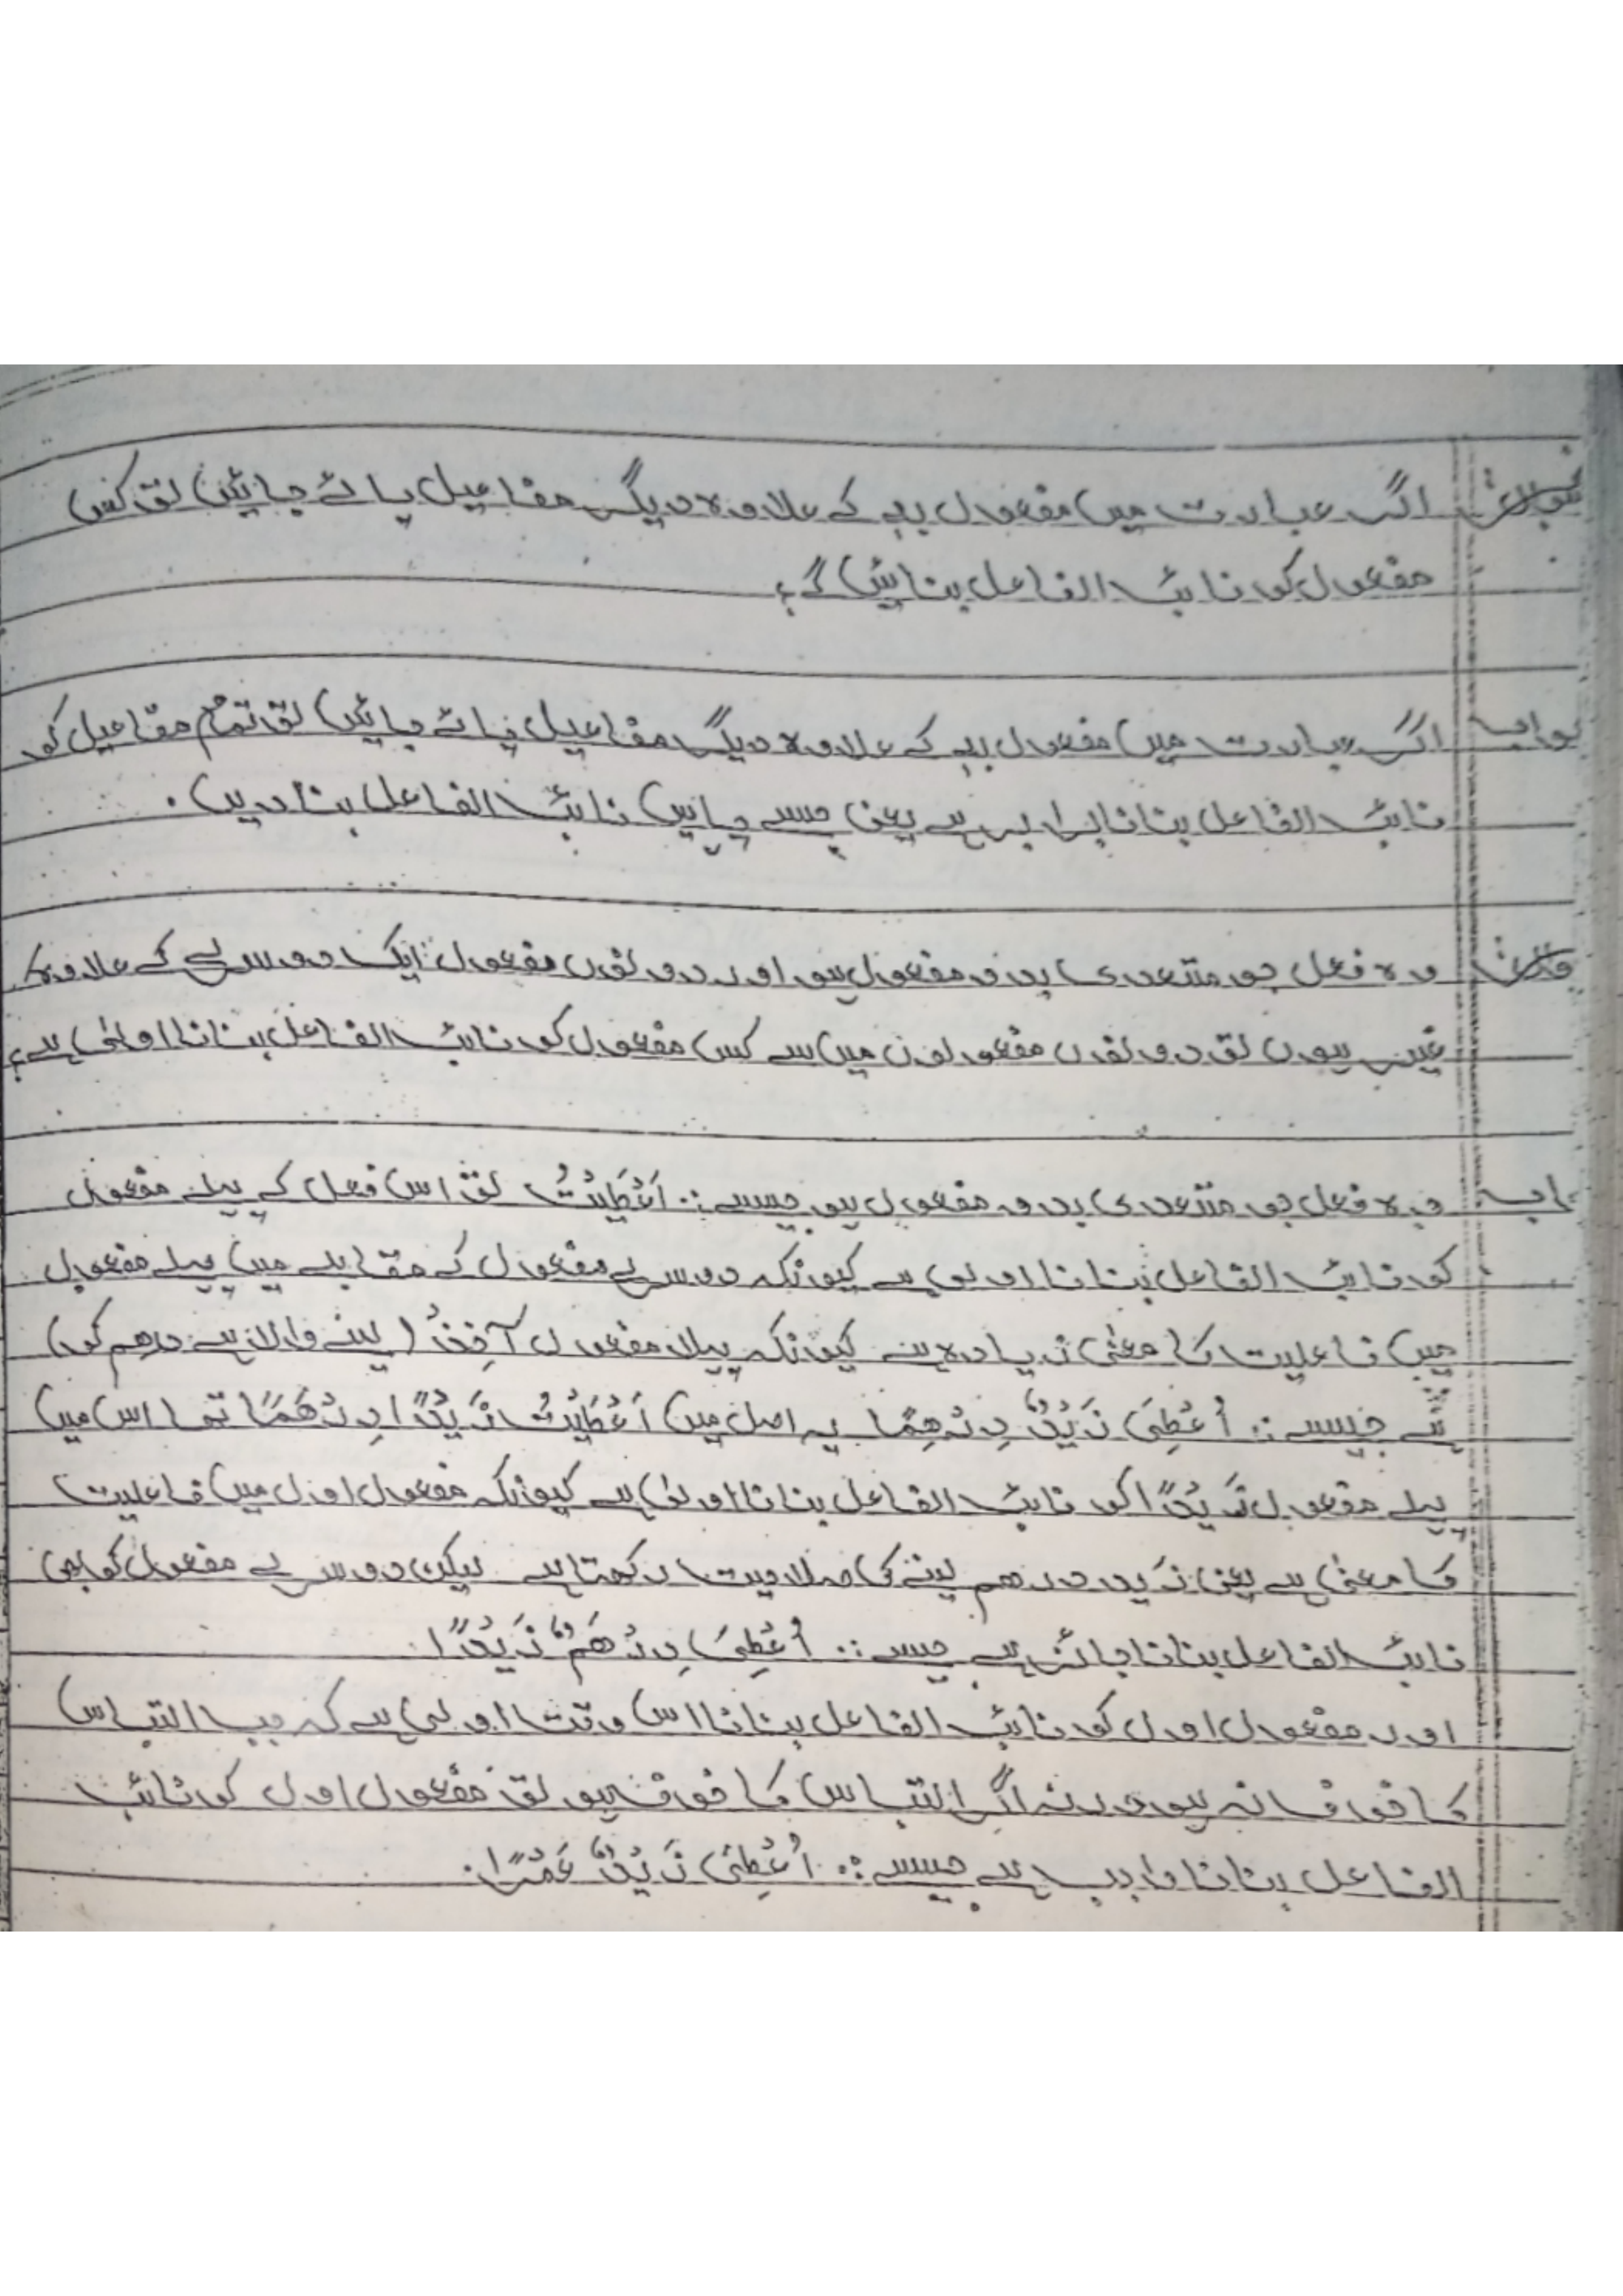 اگر عبارت میں مفعول بہ کے علاوہ دیگر مفاعیل پائے جائیں تو کس
مفعول کو نائب الفاعل بنائیں گے؟
جواب اگر عبارت میں مفعول بہ کے علاوہ دیگر مفاعیل پائے جائیں تو تمام مفاعیل کو
نائب الفاعل بنانا برابر ہے یعنی جسے چاہیں نائب الفاعل بنا دیں۔
وہ فعل جو متعدی بدو مفعول ہو اور دونوں مفعول ایک دوسرے کے علاوہ کا
غیر ہوں تو دونوں مفعولوں میں سے کس مفعول کو نائب الفاعل بنانا اولیٰ ہے؟
وہ فعل جو متعدی بدو مفعول ہو جیسے: اَعْطَیْتُ تو اس فعل کے پہلے مفعول
کو نائب الفاعل بنانا اولیٰ ہے کیونکہ دوسرے مفعول کے مقابلے میں پہلے مفعول
میں فاعلیت کا معنی زیادہ ہے کیونکہ پہلا مفعول آخِذُ (لینے والا ہے درھم کو)
ہے جیسے: اُعْطِیَ زَیْدٌ دِرْھَمًا یہ اصل میں اَعْطَیْتُ زَیْدًا دِرْھَمًا تھا اس میں
پہلے مفعول زَیْدًا کو نائب الفاعل بنانا اولیٰ ہے کیونکہ مفعول اول میں فاعلیت
کا معنی ہے یعنی زید درھم لینے کی صلاحیت رکھتا ہے لیکن دوسرے مفعول کو بھی
نائب الفاعل بنانا جائز ہے جیسے: اُعْطِیَ دِرْھَمٌ زَیْدًا۔
اور مفعول اول کو نائب الفاعل بنانا اس وقت اولیٰ ہے کہ جب التباس
کا خوف نہ ہو ورنہ اگر التباس کا خوف ہو تو مفعول اول کو نائب
الفاعل بنانا واجب ہے جیسے: اُعْطِیَ زَیْدٌ عَمْرًا۔